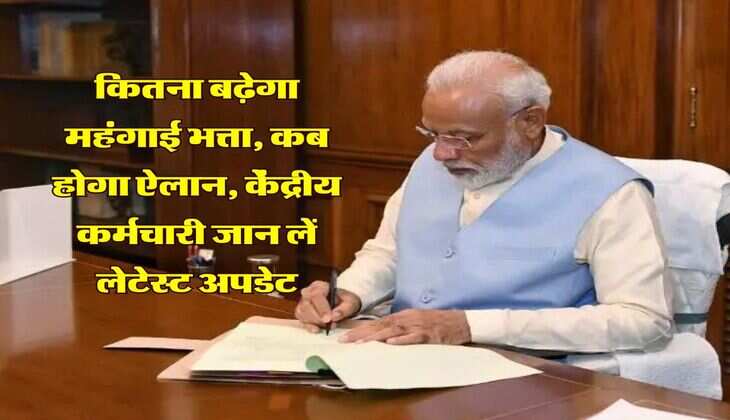 कितना बढ़ेगा
महंगाई भत्ता, कब
होगा ऐलान, केंद्रीय
कर्मचारी जान लें
लेटेस्ट अपडेट